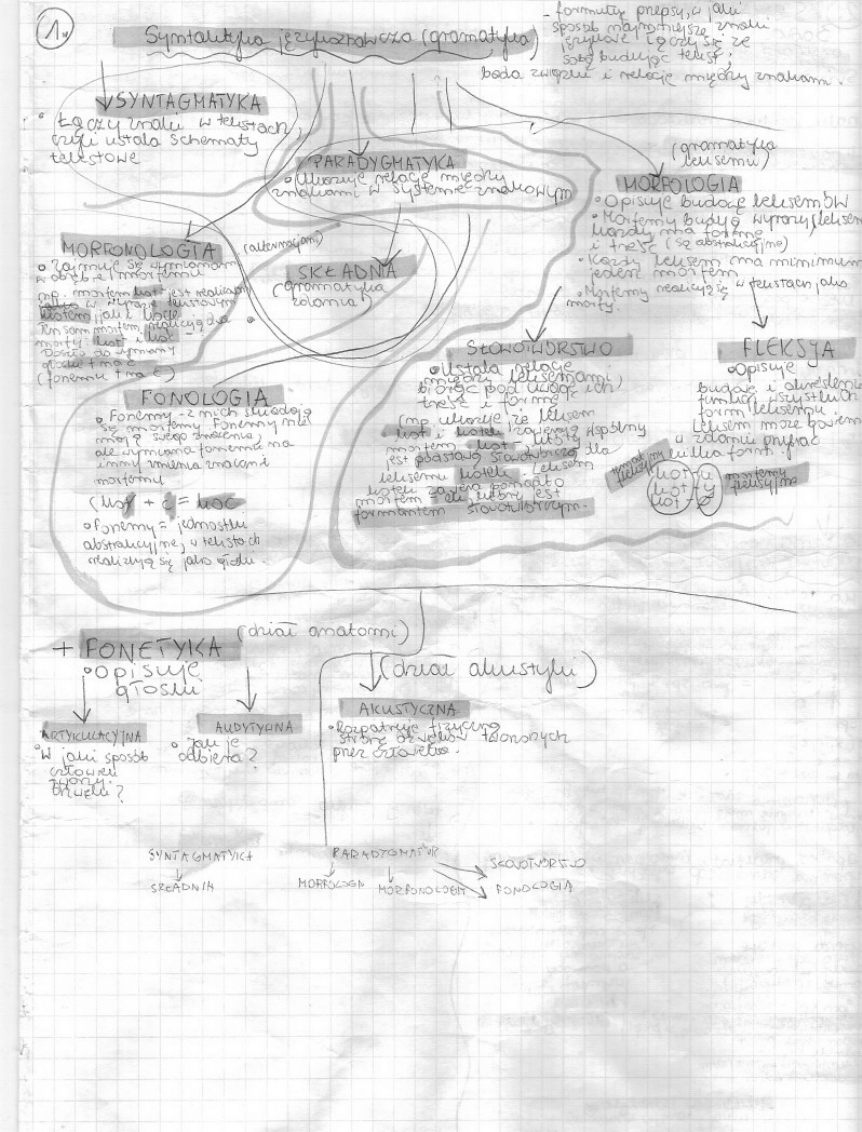 1.
Syntaktyka językoznawcza (gramatyka)
- formuły przepisy, w jaki
sposób najmniejsze znaki
językowe łączy się ze
sobą budując tekst;
bada związki i relacje między znakami.
SYNTAGMATYKA
• Łączy znaki w tekstach,
czyli ustala schematy
tekstowe
PARADYGMATYKA
• Ukazuje relacje między
znakami w systemie znakowym
(gramatyka
leksemu)
MORFOLOGIA
• Opisuje budowę leksemów
• Morfemy budują wyrazy/leksem
każdy ma formę
i treść (są abstrakcyjne)
• Każdy leksem ma minimum
jeden morfem
• Morfemy realizują się w tekstach jako
morfy.
MORFONOLOGIA (alternacjami)
• Zajmuje się wymianami
w obrębie morfemu
np. morfem kot jest realizow
w wyrazie tekstowym
kotem jak i kocie
Ten sam morfem realizują dwa
morfy: kot i koć
Doszło do wymiany
głoski t na ć
(fonemu t na ć)
SKŁADNIA
(gramatyka
zdania)
SŁOWOTWÓRSTWO
• Ustala relacje
między leksemami
biorąc pod uwagę ich
treść i formę
(np. ukazuje, że leksem
kot i kotek zawierają wspólny
morfem kot, który
jest podstawą słowotwórczą dla
leksemu kotek. Leksem
kotek zawiera ponadto
morfem -ek, który jest
formantem słowotwórczym.
FLEKSJA
• Opisuje
budowę i określenie
funkcji wszystkich
form leksemu
Leksem może bowiem
w zdaniu przybrać
kilka form.
temat fleksyjny
kot-u
kot-y
kot-
morfemy
fleksyjne
FONOLOGIA
• Fonemy - z nich składają
się morfemy. Fonemy nie
mają swego znaczenia,
ale wymiana fonemu na
inny zmienia znaczenie
morfemu
(kot + ć = koć
• Fonemy = jednostki
abstrakcyjne, w tekstach
realizują się jako głoski.
+ FONETYKA (dział anatomii)
• Opisuje
głoski
(dział akustyki)
ARTYKULACYJNA
• W jaki sposób
człowiek
tworzy
dźwięki?
AUDYTYWNA
• Jak je
odbiera?
AKUSTYCZNA
• Rozpatruje fizyczną
stronę dźwięków tworzonych
przez człowieka.
SYNTAGMATYKA
SKŁADNIA
PARADYGMATYK
MORFOLOGIA
MORFONOLOGIA
SŁOWOTWÓRSTWO
FONOLOGIA